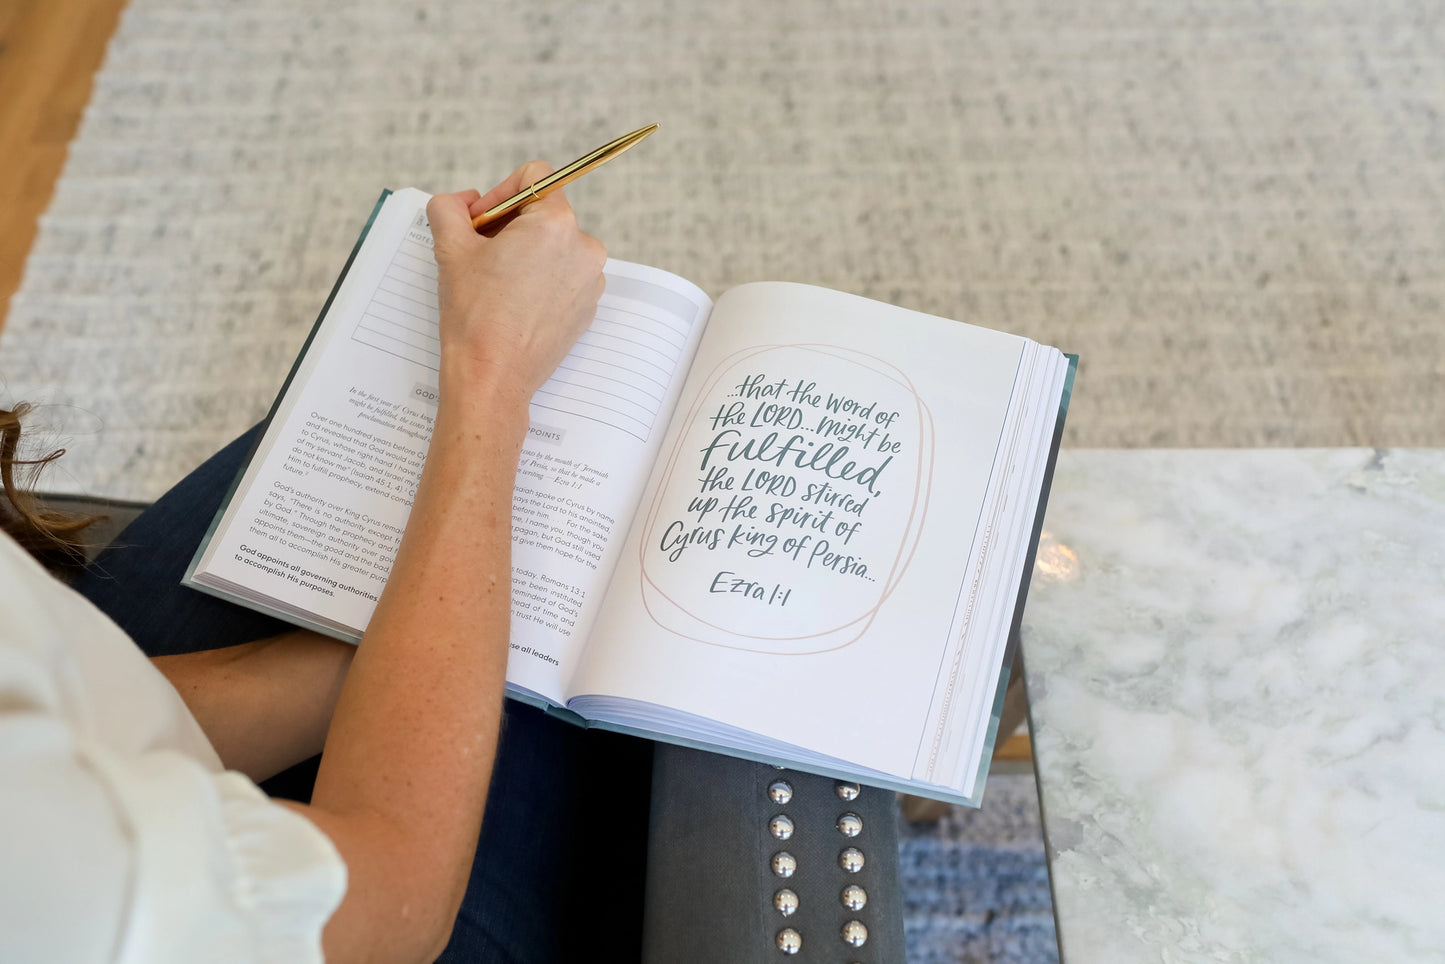 NOTES
GOD'S
POINTS
In the first year of Cyrus king
might be fulfilled, the LORD
proclamation throughout
LORD by the mouth of Jeremiah
of Persia, so that he made a
in writing — Ezra 1:1
Over one hundred years before Cy
and revealed that God would use
to Cyrus, whose right hand I have
of my servant Jacob, and Israel my
do not know me" (Isaiah 45:1, 4).
Him to fulfill prophecy, extend comp
future.
Isaiah spoke of Cyrus by name
says the Lord to his anointed,
before him . . . For the sake
me, I name you, though you
pagan, but God still used
d give them hope for the
God's authority over King Cyrus remain
says, "There is no authority except fr
by God." Through the prophecy and
ultimate, sovereign authority over go
appoints them—the good and the bad
them all to accomplish His greater purp
s today. Romans 13:1
have been instituted
reminded of God's
ahead of time and
n trust He will use
God appoints all governing authorities
to accomplish His purposes.
use all leaders
...that the word of
the LORD...might be
fulfilled,
the LORD stirred
up the spirit of
Cyrus king of Persia...
Ezra 1:1